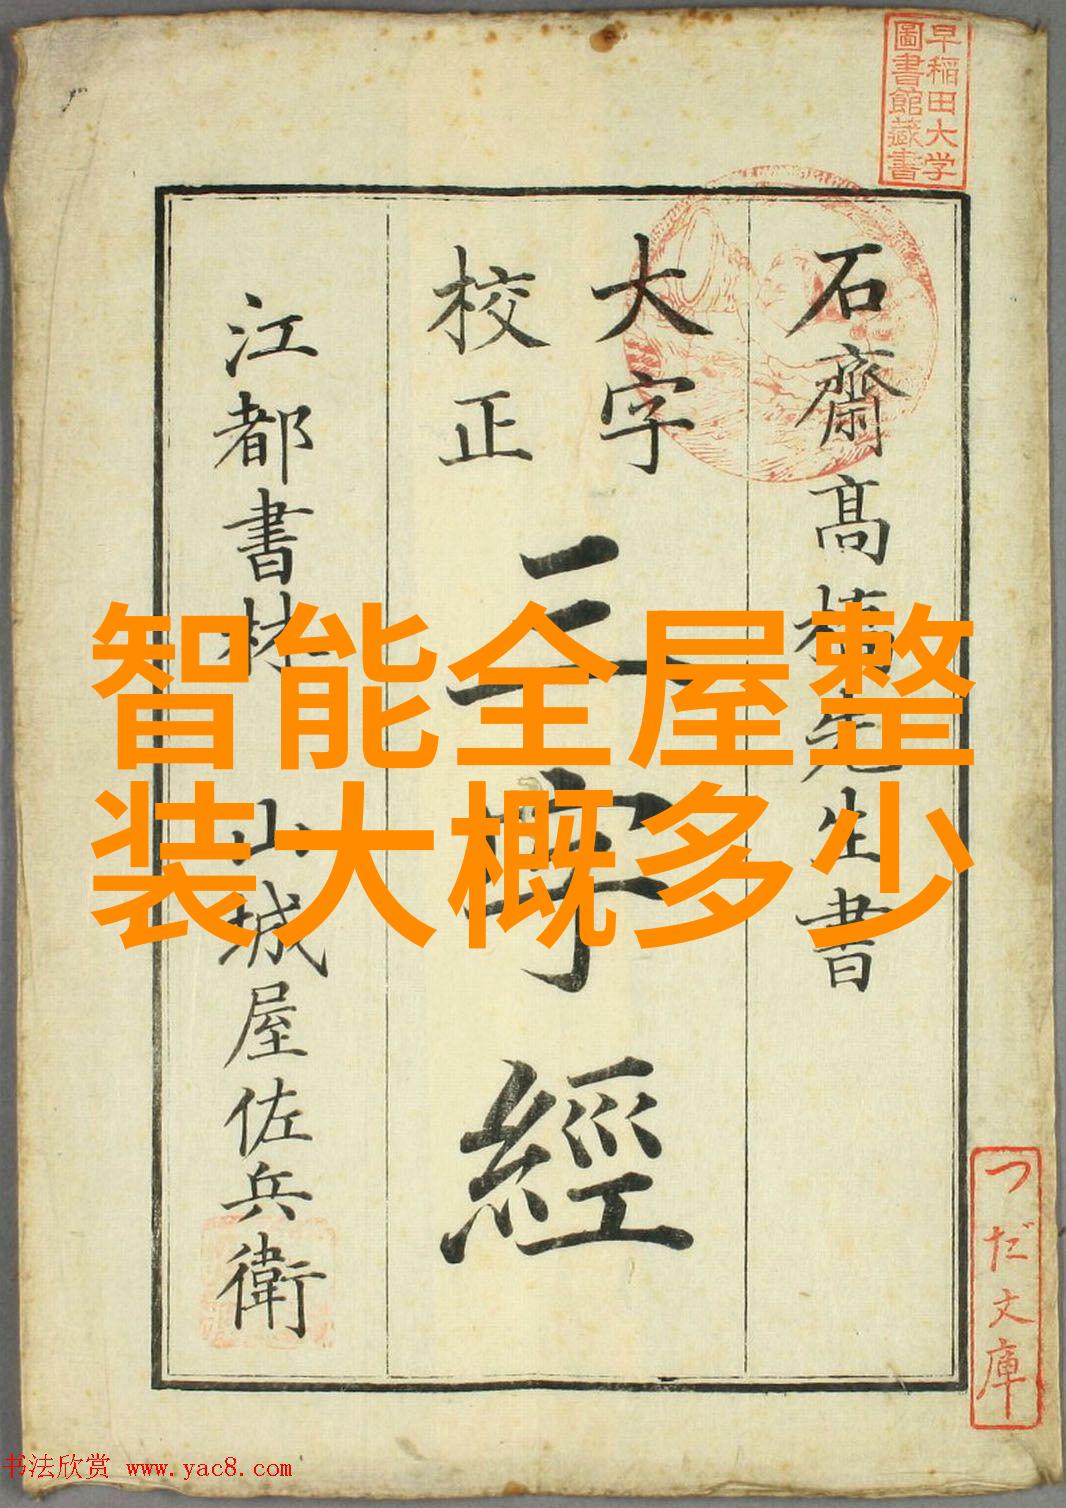 早稲田大学
圖書館藏書
石齋髙橋先生書
大字
校正
三字經
江都書林 山城屋佐兵衛
智能全屋整
装大概多少
つだ文庫
书法欣赏 www.yac8.com